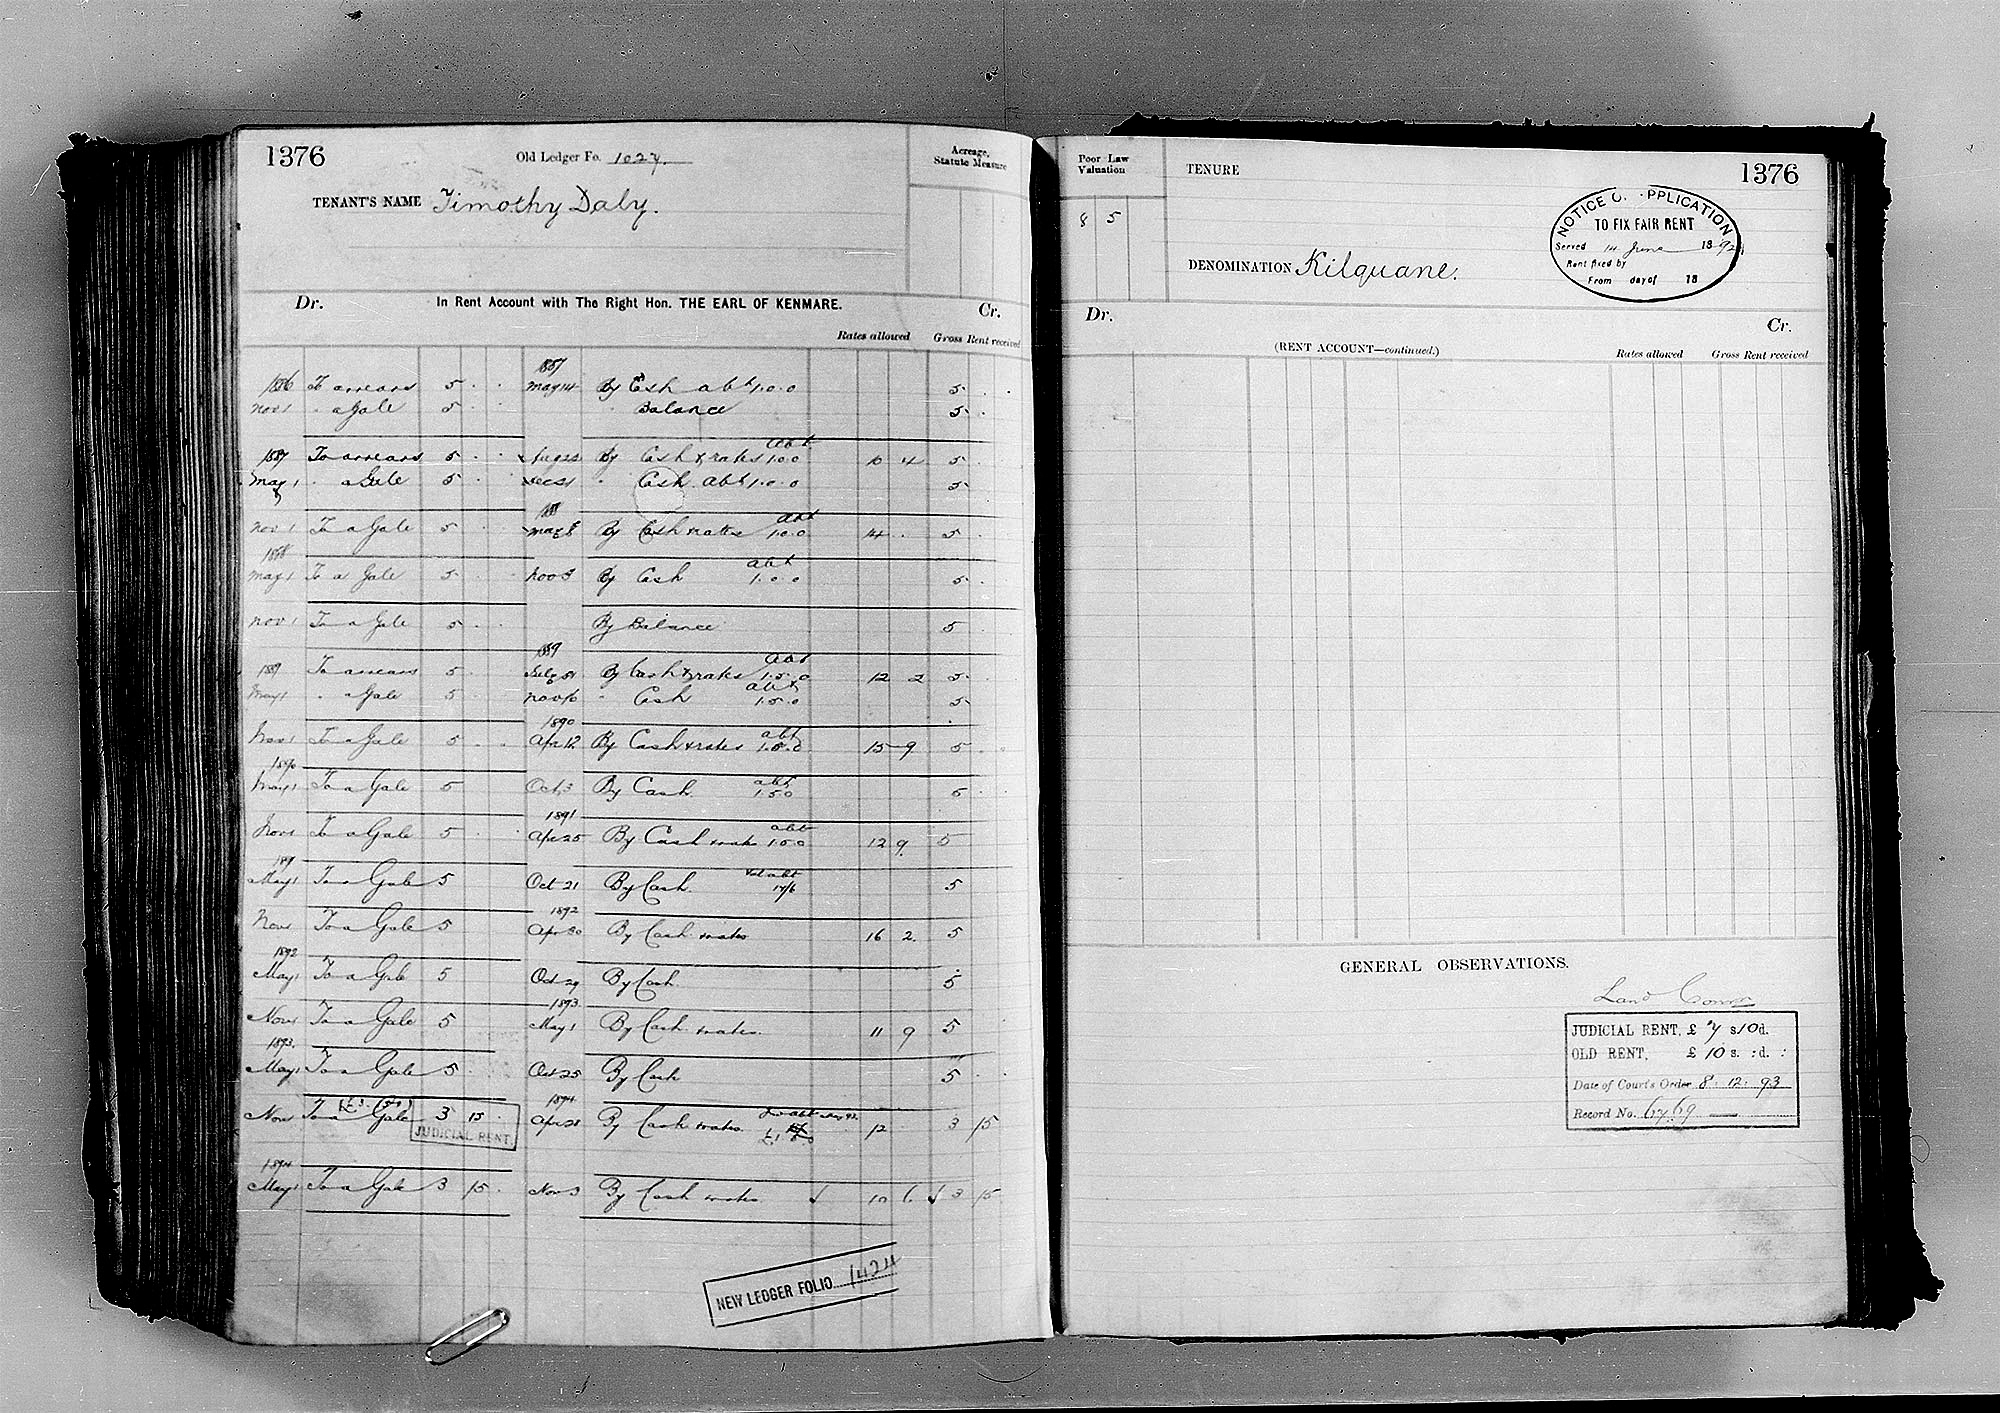 1376
Old Ledger Fo. 1027.
Acreage, Statute Measure
TENANT'S NAME Timothy Daly.
Dr. In Rent Account with The Right Hon. THE EARL OF KENMARE. Cr.
Rates allowed Gross Rent received
1887
1886 To arrears 5 . . May 14 By Cash abt 1.0.0 5 . .
Nov 1 " a Gale 5 . . " Balance 5 . .
abt
1887 To arrears 5 . . Aug 23 By Cash & rates 1.0.0 10 4 5 .
May 1 " a Gale 5 . " Cash abt 1.0.0 5 .
188 abt
Nov 1 To a Gale 5 . . By Cash & rates 1.0.0 14 . 5 .
1888 abt
May 1 To a Gale 5 . . Nov 3 By Cash 1.0.0 5 .
Nov 1 To a Gale 5 . . By Balance 5
1889 abt
1889 To arrears 5 . July 31 By Cash & rates 1.5.0 12 2 5 .
abt
May 1 " a Gale 5 . Nov 16 " Cash 1.5.0 5
1890 abt
Nov 1 To a Gale 5 . . Apr 12 By Cash & rates 1.5.0 15 9 5 .
1890 abt
May 1 To a Gale 5 Oct 3 By Cash 1 5 0 5 .
1891 abt
Nov 1 To a Gale 5 . Apr 25 By Cash & rates 1 5 0 12 9. 5
1891 abt
May 1 To a Gale 5 Oct 21 By Cash 17/6 5
1892
Nov 1 To a Gale 5 Apr 30 By Cash & rates 16 2. 5
1892
May 1 To a Gale 5 Oct 29 By Cash 5
1893
Nov 1 To a Gale 5 May 1 By Cash & rates. 11 9 5
1893.
May 1 To a Gale 5 . Oct 25 By Cash 5 . .
1894
Nov 1 To a Gale 3 15 . Apr 28 By Cash & rates abt 12 3 15
JUDICIAL RENT.
1894
May 1 To a Gale 3 15 . Nov 3 By Cash & rates 10 6 3 15
NEW LEDGER FOLIO 1424
Poor Law Valuation
TENURE
1376
8 5
NOTICE O. .PPLICATION
TO FIX FAIR RENT
Served 14 June 1892
Rent fixed by
From day of 18
DENOMINATION Kilquane.
Dr. Cr.
(RENT ACCOUNT—continued.) Rates allowed Gross Rent received
GENERAL OBSERVATIONS.
Land Comm
JUDICIAL RENT, £ 7 s 10 d.
OLD RENT, £ 10 s. : d. :
Date of Court's Order 8. 12. 93
Record No. 6769